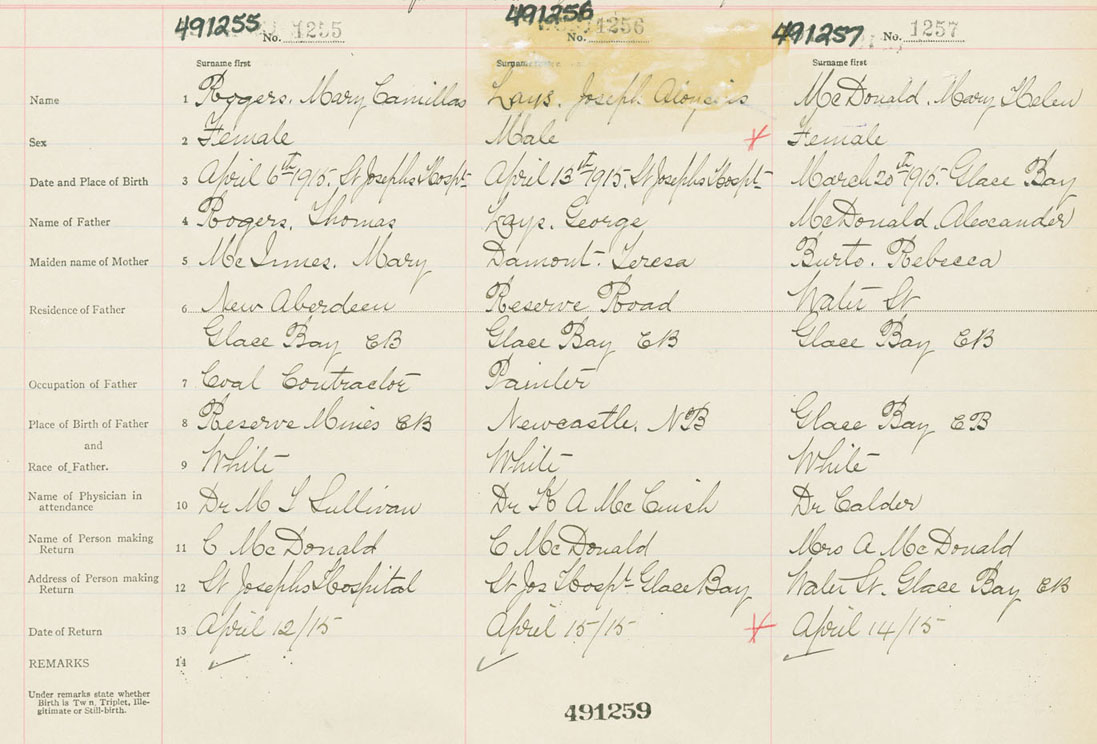 491255 No. 1255
491256 No. 1256
491257 No. 1257
Surname first Surname first
Name 1 Rogers. Mary Camillas Joseph McDonald. Mary Helen
Sex 2 Female Male Female
Date and Place of Birth 3 April 6th 1915. St Josephs Hospt April 13th 1915. St Josephs Hospt March 20th 1915. Glace Bay
Name of Father 4 Rogers, Thomas George McDonald, Alexander
Maiden name of Mother 5 McInnes. Mary Damont. Teresa Burto. Rebecca
Residence of Father 6 New Aberdeen Reserve Road Water St
Glace Bay CB Glace Bay CB Glace Bay CB
Occupation of Father 7 Coal Contractor Painter
Place of Birth of Father 8 Reserve Mines CB Newcastle. NB Glace Bay CB
and
Race of Father. 9 White White White
Name of Physician in
attendance 10 Dr M S Sullivan Dr K A McCuish Dr Calder
Name of Person making
Return 11 C McDonald C McDonald Mrs A McDonald
Address of Person making
Return 12 St Josephs Hospital St Jos Hospt Glace Bay Water St. Glace Bay CB
Date of Return 13 April 12/15 April 15/15 April 14/15
REMARKS 14
Under remarks state whether
Birth is Twin, Triplet, Ille-
gitimate or Still-birth.
491259